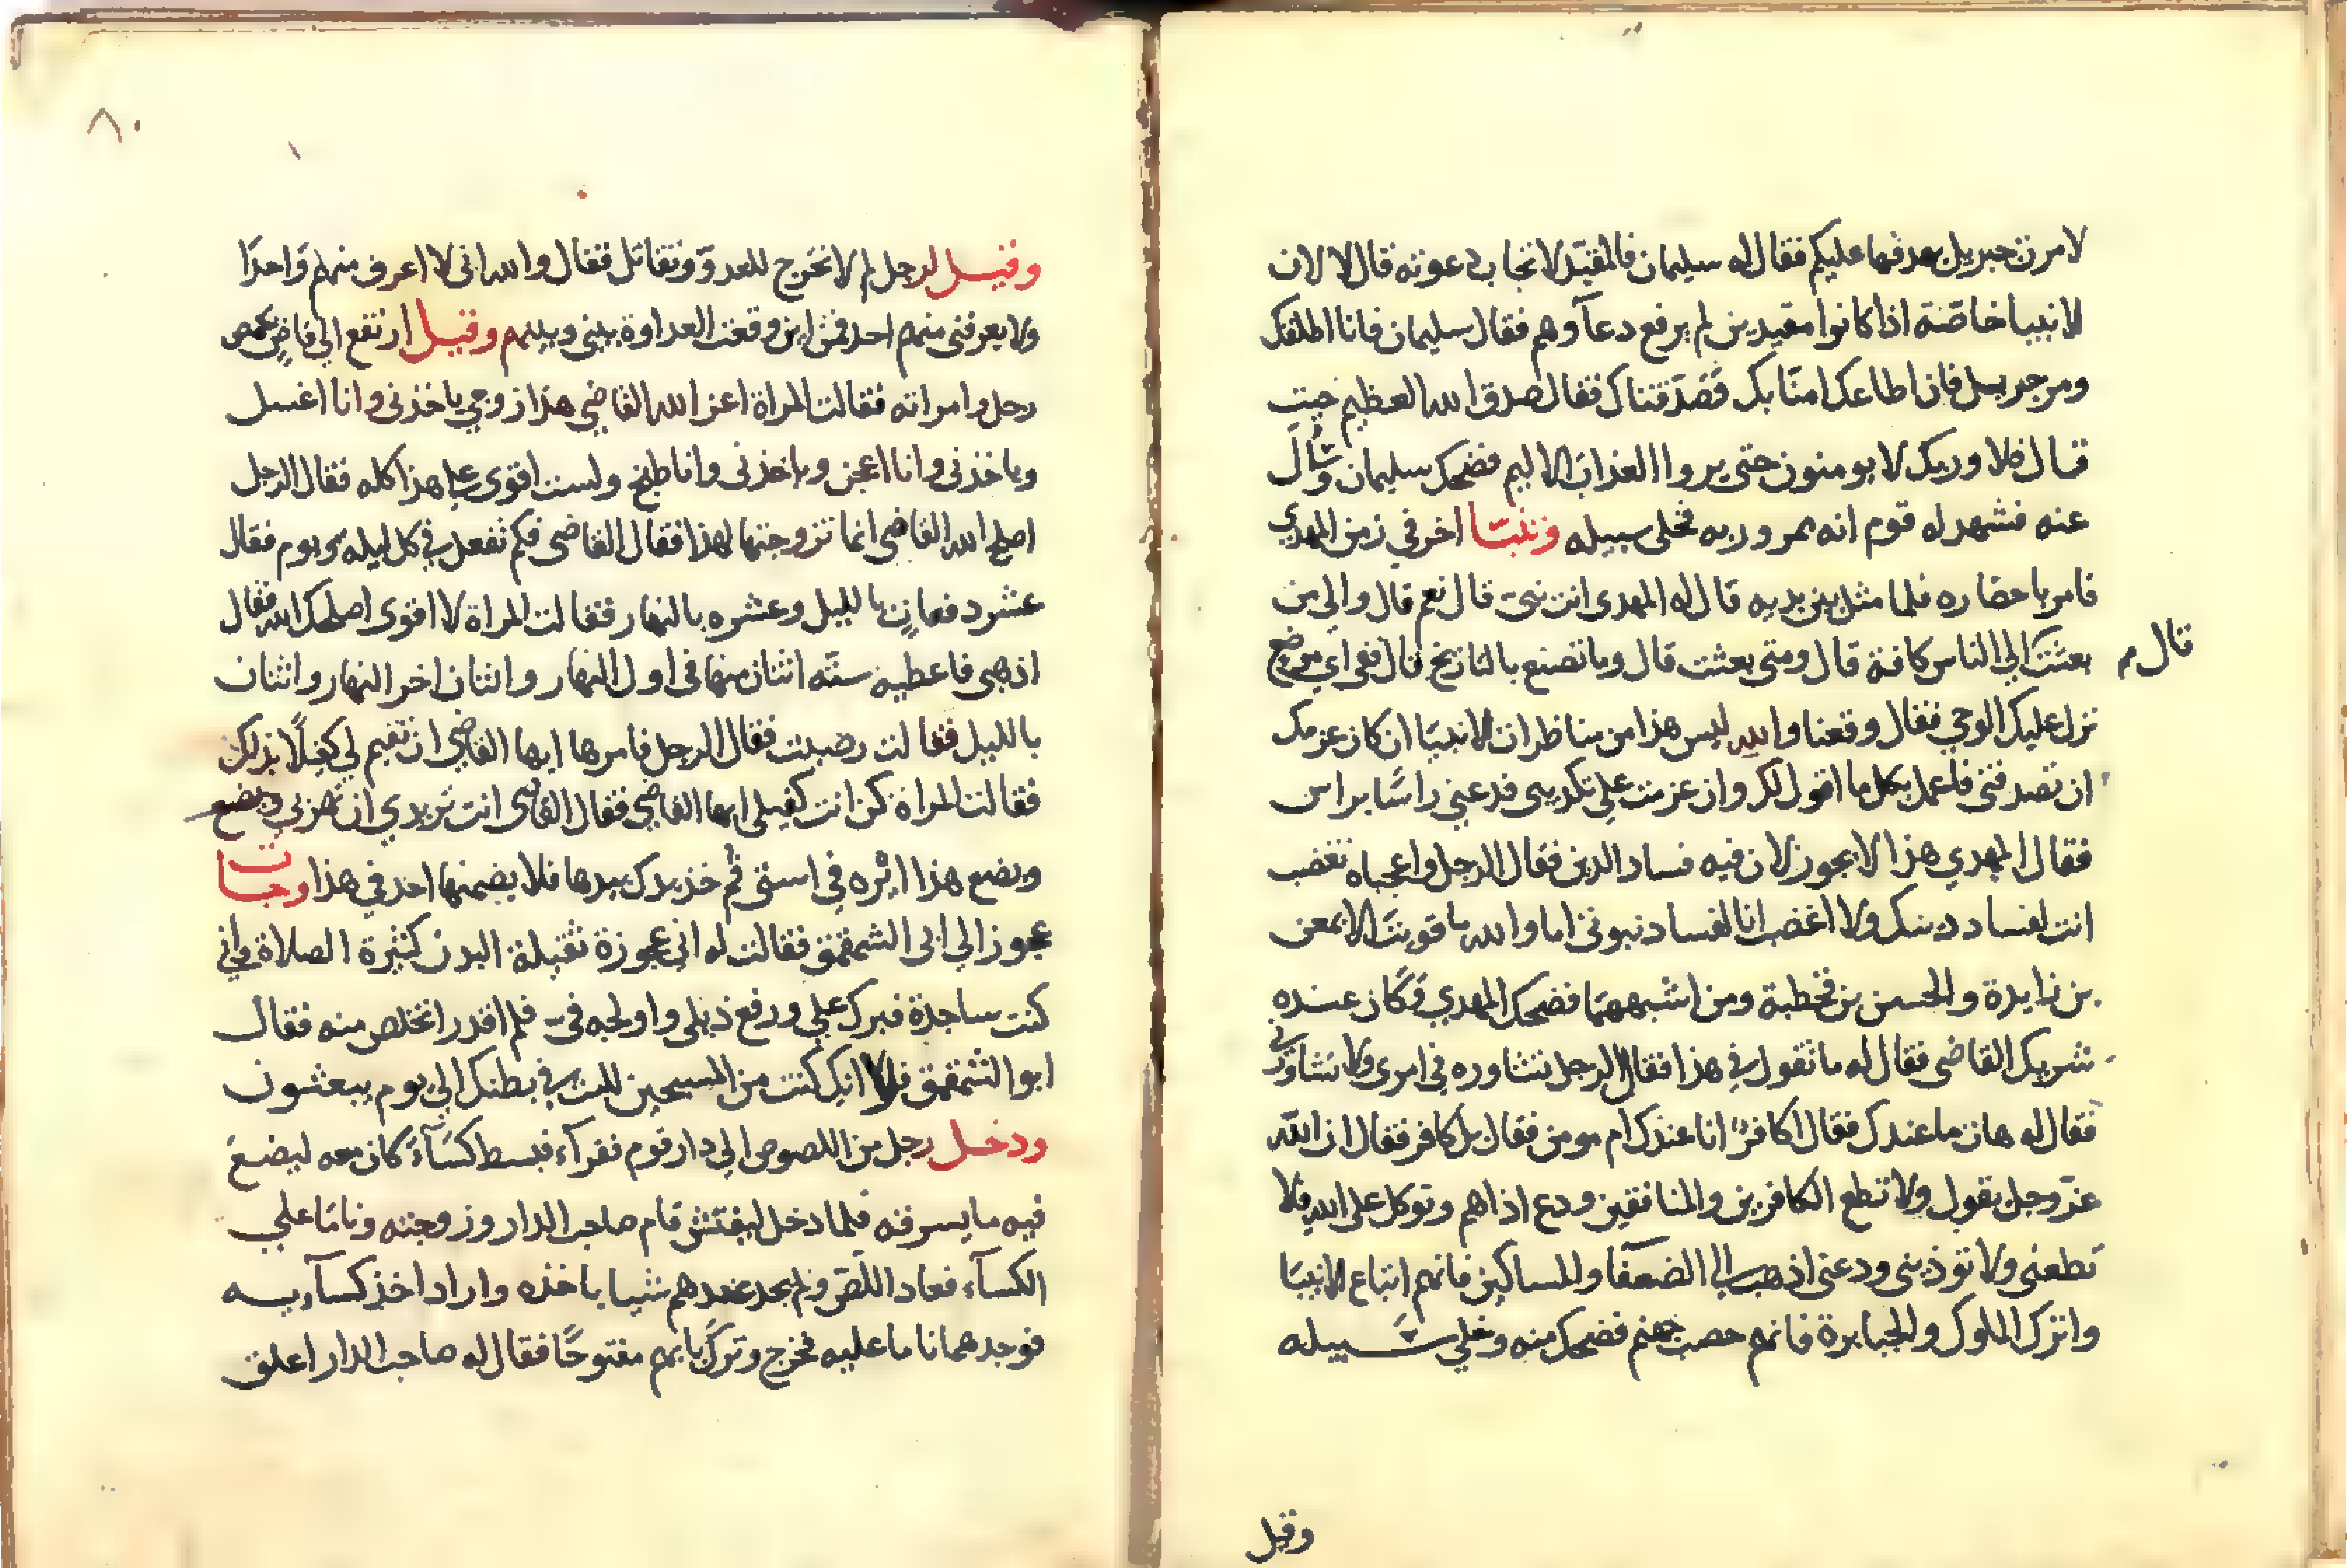 لامرت جبريل يهدفها عليكم فقال له سليمان فالمقيد لا تجاب دعوته قال لا لان
الانبيا خاصّة اذا كانوا مقيدين لم يرفع دعآوهم فقال سليمان فانا اطلقك
ومر جبريل فان اطاعك امنّا بك وصَدّقتناك فقال صدق الله العظيم حيث
قال فلا وربك لا يومنون حتى يروا العذاب الاليم فضحك سليمان وسَال
عنه فشهد له قوم انه ممرور به فخلى سبيله وتنبّا اخر في زمن المهدي
فامر باحضاره فلما مثل بين يديه قال له المهدى انت نبي قال نعم قال والى من
بعثت قال م الى الناس كافة قال ومتى بعثت قال وما تصنع بالتاريخ قال ففى اي موضع
نزل عليك الوحي فقال وقعنا والله ليس هذا من مناظرات الانبيَا ان كان عزمك
ان تصدقنى فاعمل بكل ما اقول لك وان عزمت على تكديبى فدعني راسًا براس
فقال المهدي هذا لا يجوز لان فيه فساد الدين فقال الرجل واعجباه تغضب
انت لفساد دينك ولا اغضب انا لفساد نبوتى اما والله ما قويت الا بمعن
بن زايدة والحسن بن قحطبة ومن اشبههمَا فضحك المهدي وكان عنده
شريك القاضى فقال له ما تقول في هذا فقال الرجل تشاوره في امرى ولا تشاورنى
فقال له هات ما عندك فقال اكافرٌ انا عندك ام مومن فقال بل كافر فقال ان الله
عزّ وجل يقول ولا تطع الكافرين والمنافقين ودع اذاهم وتوكل على الله فلا
تطعنى ولا توذينى ودعنى اذهب الى الضعفا والمساكين فانهم اتباع الانبيَا
واترك الملوك والجبابرة فانهم حصب جهنم فضحك منه وخلي سبيله
وقيل
٨٠
وقيل لرجل لم لا تخرج للعدوّ وتقاتل فقال والله انى لا اعرف منهم وَاحدًا
ولا يعرفنى منهم احد فمن اين وقعت العداوة بينى وبينهم وقيل ارتفع الى قاضٍ بحمص
رجل وامراته فقالت المراة اعز الله القاضي هذا زوجي ياخذنى وانا اغسل
وياخذنى وانا اعجن وياخذنى وانا طبخ ولست اقوى على هذا كله فقال الرجل
اصلح الله القاضى انما تزوجتها لهذا فقال القاضى فكم تفعل في كل ليله ويوم فقال
عشر دفعات بالليل وعشره بالنهار فقالت المراة لا اقوى اصلحك الله فقال
اذهبى فاعطيه ستّه اثنان منها في اول النهار واثنان اخر النهار واثنان
بالليل فقالت رضيت فقال الرجل فامرها ايها القاضي ان تقيم لي كفيلًا بذلك
فقالت المراة كن انت كفيلى ايها القاضي فقال القاضي انت تريدي ان تهربي ويضع
ويضع هذا ايره في استى قُم خذ بيدك بيدها فلا يضمنها احد في هذا وجات
عجوز الى ابى الشمقمق فقالت له انى عجوزة ثقيلة البدن كثيرة الصلاة واني
كنت ساجدة فبرك علي ورفع ذيلى واولجه فيّ فلم اقدر اتخلص منه فقال
ابو الشمقمق فلولا انك كنت من المسبحين للبث في بطنك الى يوم يبعثون
ودخل رجل من اللصوص الي دار قوم فقرآء فبسط كسَآءً كان معه ليضعَ
فيه ما يسرقه فلما دخل ليفتش قام صاحب الدار وزوجته ونامَا علي
الكسآء فعاد اللصّ ولم يجد عندهم شيا ياخذه واراد اخذ كسآءيه
فوجدهما ناما عليه فخرج وترك بابهم مفتوحًا فقال له صاحب الدار اعلق